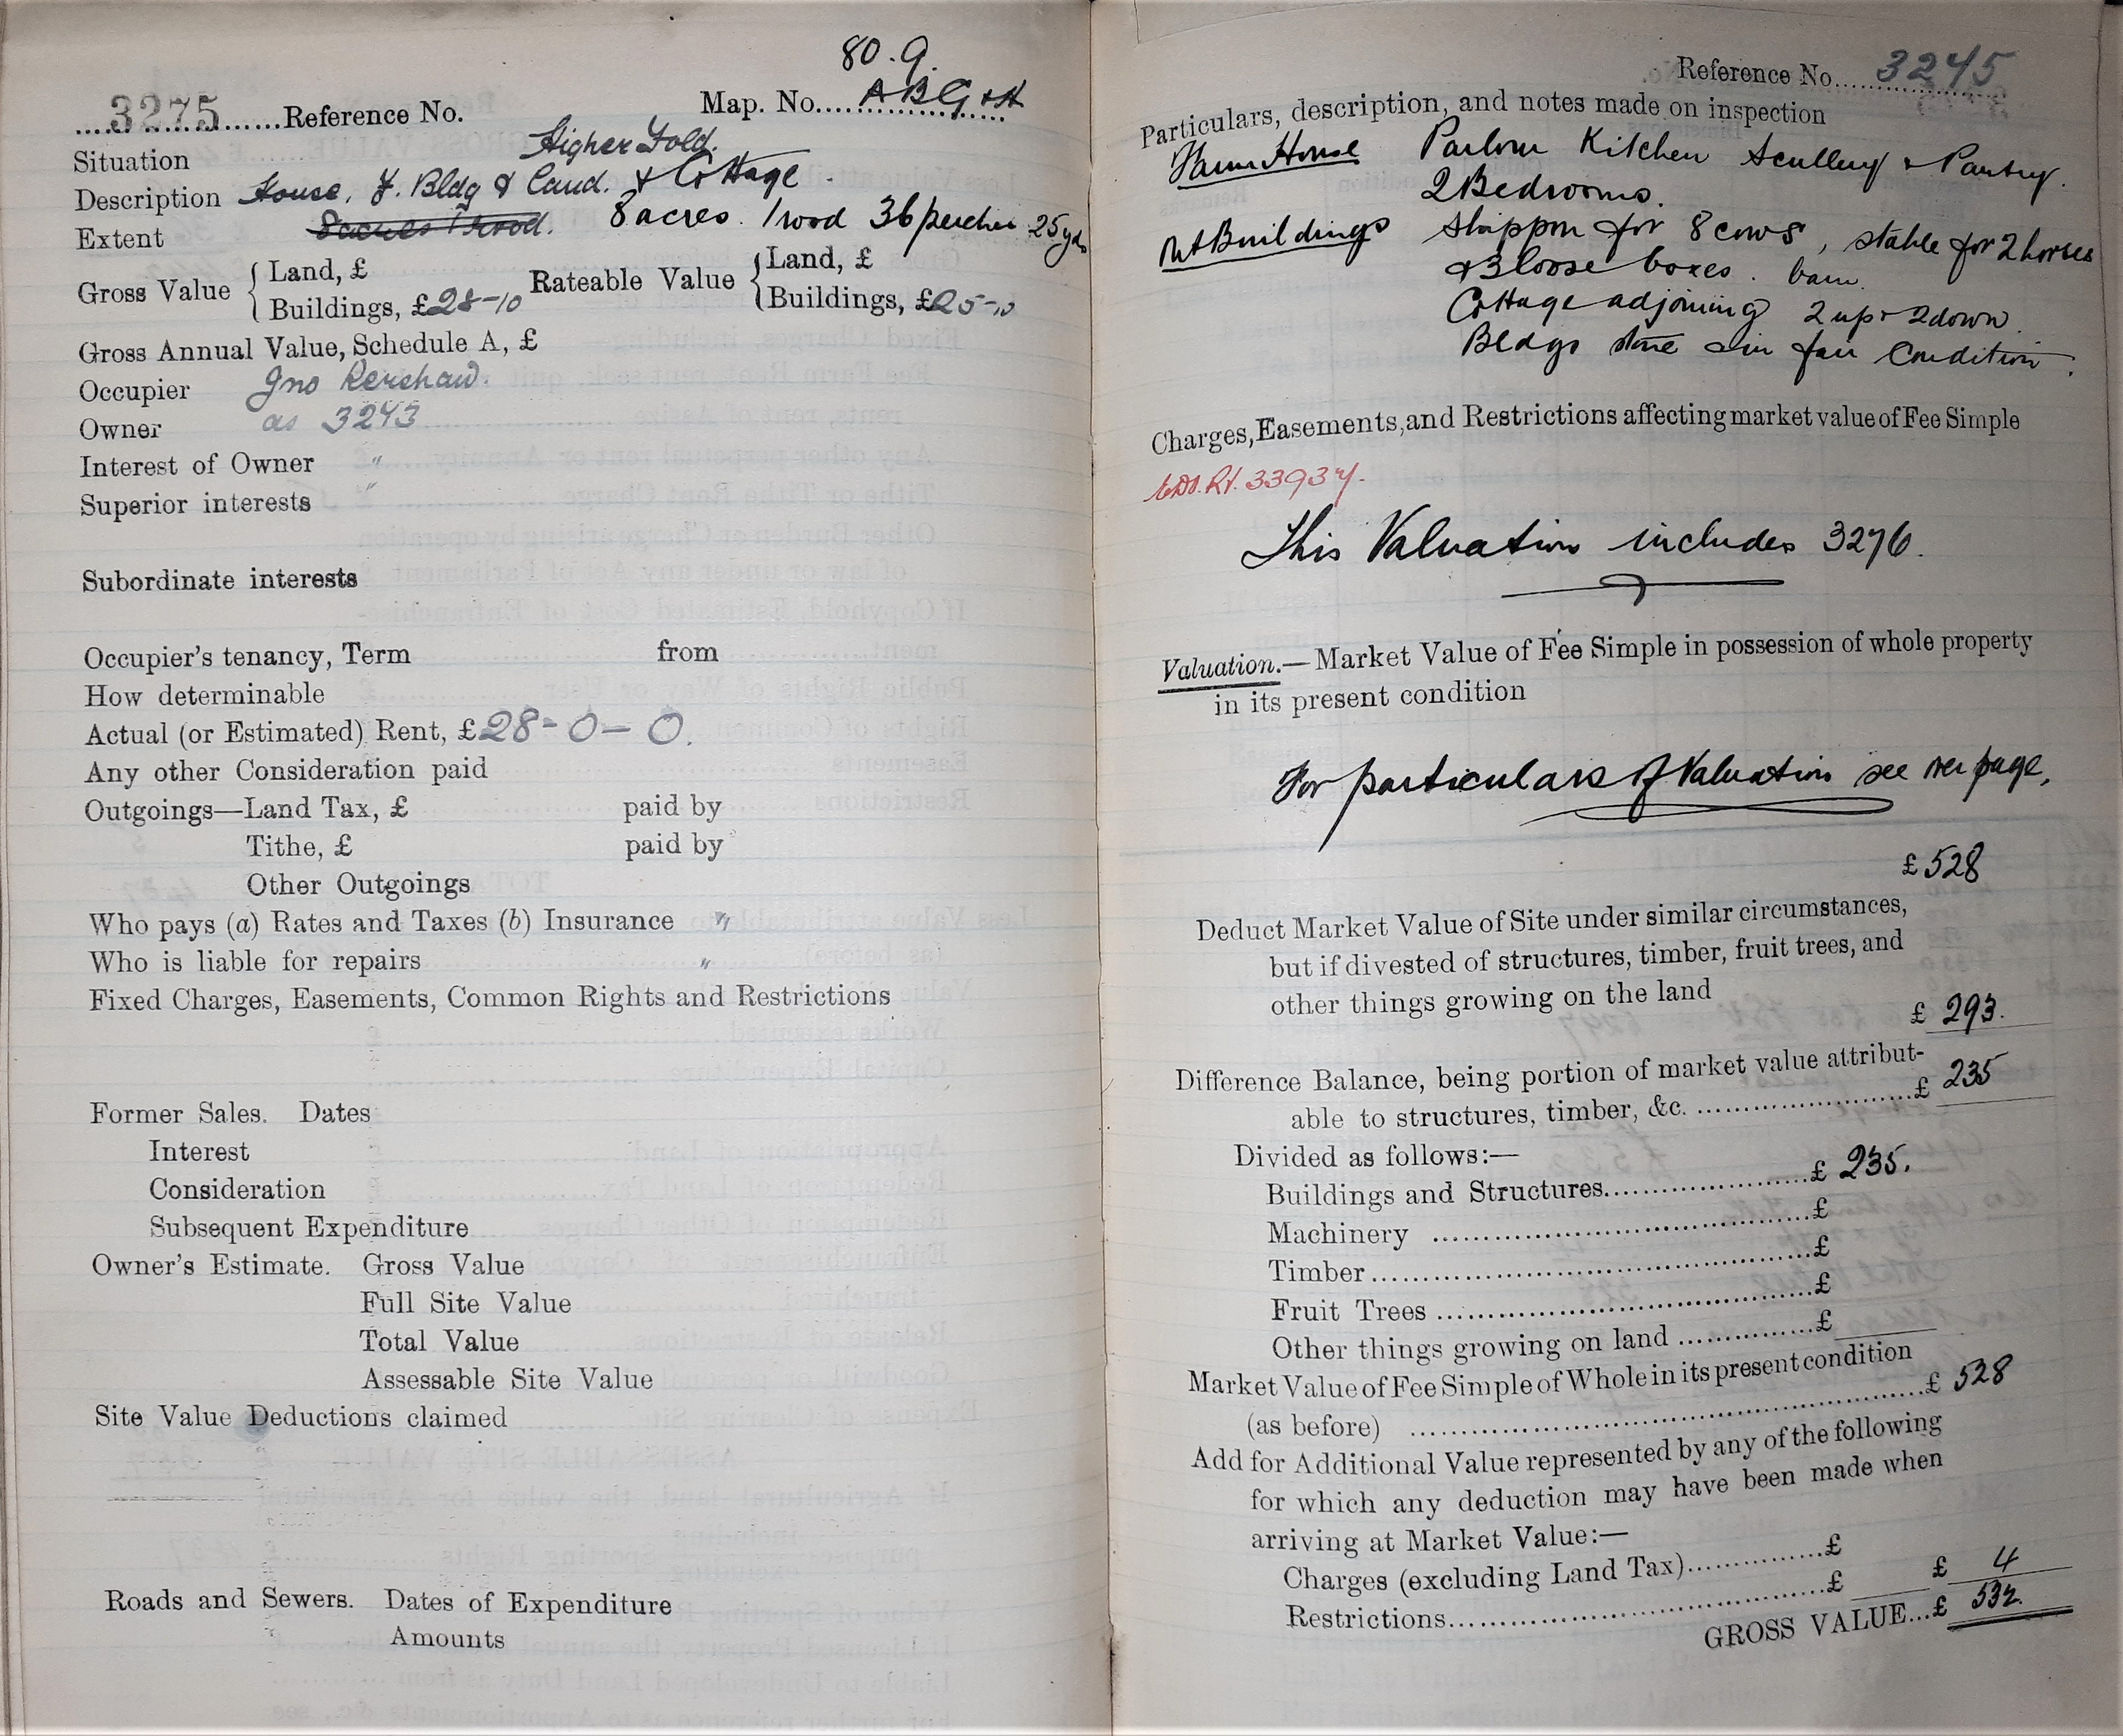 80.9.
3275 Reference No. Map. No. ABG & H
Situation Higher Fold.
Description House, F. Bldg & Land. & Cottage.
Extent 8 acres 1 rood. 8 acres. 1 rood 36 perches 25 yds
Gross Value { Land, £ Rateable Value { Land, £
Buildings, £28-10 Buildings, £25-10
Gross Annual Value, Schedule A, £
Occupier Jno Kershaw.
Owner as 3243
Interest of Owner "
Superior interests "
Subordinate interests
Occupier's tenancy, Term from
How determinable
Actual (or Estimated) Rent, £28-0-0.
Any other Consideration paid
Outgoings—Land Tax, £ paid by
Tithe, £ paid by
Other Outgoings
Who pays (a) Rates and Taxes (b) Insurance "
Who is liable for repairs "
Fixed Charges, Easements, Common Rights and Restrictions
Former Sales. Dates
Interest
Consideration
Subsequent Expenditure
Owner's Estimate. Gross Value
Full Site Value
Total Value
Assessable Site Value
Site Value Deductions claimed
Roads and Sewers. Dates of Expenditure
Amounts
Reference No. 3275
Particulars, description, and notes made on inspection
Farm House Parlour Kitchen Scullery & Pantry.
2 Bedrooms.
Out Buildings Shippon for 8 cows, stable for 2 horses
& 3 loose boxes. barn.
Cottage adjoining 2 up & 2 down.
Bldgs stone & in fair Condition.
Charges, Easements, and Restrictions affecting market value of Fee Simple
33937.
This Valuation includes 3276.
Valuation.—Market Value of Fee Simple in possession of whole property
in its present condition
For particulars of Valuation see over page.
£528
Deduct Market Value of Site under similar circumstances,
but if divested of structures, timber, fruit trees, and
other things growing on the land
£ 293.
Difference Balance, being portion of market value attribut-
able to structures, timber, &c. £ 235
Divided as follows:—
Buildings and Structures £ 235.
Machinery £
Timber £
Fruit Trees £
Other things growing on land £
Market Value of Fee Simple of Whole in its present condition
(as before) £ 528
Add for Additional Value represented by any of the following
for which any deduction may have been made when
arriving at Market Value:—
Charges (excluding Land Tax) £
Restrictions £ £ 4
GROSS VALUE...£ 532.